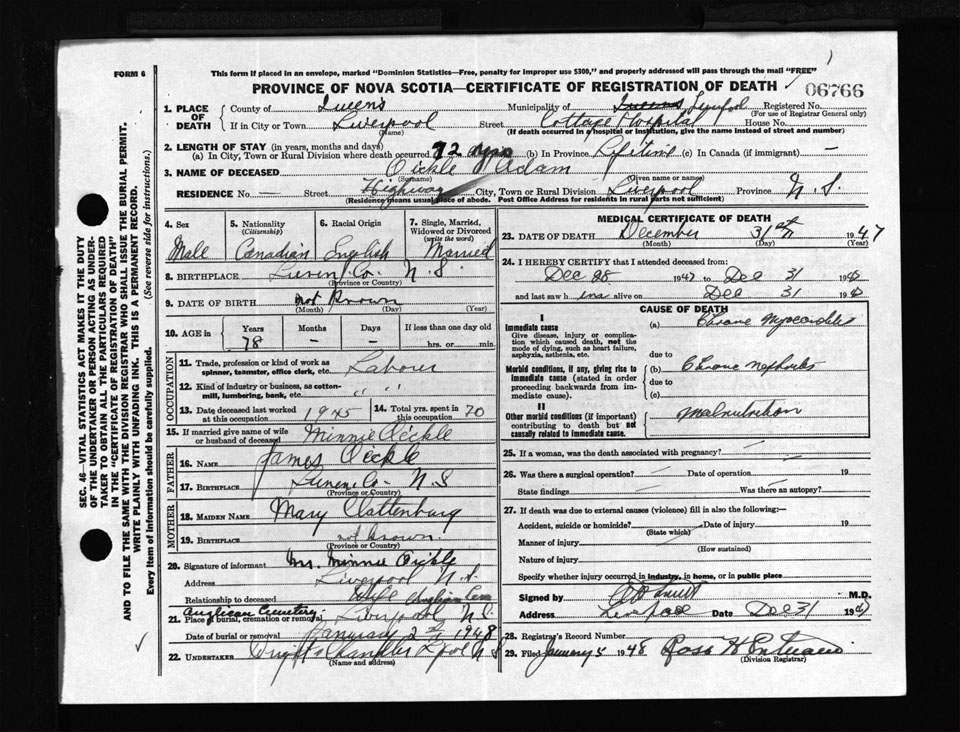 FORM 6
This form if placed in an envelope, marked "Dominion Statistics—Free, penalty for improper use $300," and properly addressed will pass through the mail "FREE"
PROVINCE OF NOVA SCOTIA—CERTIFICATE OF REGISTRATION OF DEATH
06766
1. PLACE OF DEATH County of Queens Municipality of Queens Liverpool Registered No.
(For use of Registrar General only)
If in City or Town Liverpool Street Cottage Hospital House No.
(Name) (If death occurred in a hospital or institution, give the name instead of street and number)
2. LENGTH OF STAY (in years, months and days)
(a) In City, Town or Rural Division where death occurred 72 yrs (b) In Province Lifetime (c) In Canada (if immigrant) —
3. NAME OF DECEASED Oickle Adam
(Surname) (Given name or names)
RESIDENCE No. — Street Highway City, Town or Rural Division Liverpool Province N.S.
(Residence means usual place of abode. Post Office Address for residents in rural parts not sufficient)
4. Sex 5. Nationality (Citizenship) 6. Racial Origin 7. Single, Married, Widowed or Divorced (write the word)
Male Canadian English Married
8. BIRTHPLACE Lunen Co. N.S.
(Province or Country)
9. DATE OF BIRTH not known
(Month) (Day) (Year)
10. AGE in Years Months Days If less than one day old
78 — — hrs. or min.
OCCUPATION
11. Trade, profession or kind of work as spinner, teamster, office clerk, etc. Labour
12. Kind of industry or business, as cotton-mill, lumbering, bank, etc. " "
13. Date deceased last worked at this occupation 1945 14. Total yrs. spent in this occupation 70
15. If married give name of wife or husband of deceased Minnie Oickle
FATHER
16. NAME James Oickle
17. BIRTHPLACE Lunen Co. N.S
(Province or Country)
MOTHER
18. MAIDEN NAME Mary Clattenburg
19. BIRTHPLACE not known.
(Province or Country)
20. Signature of informant Mrs. Minnie Oickle
Address Liverpool N.S.
Relationship to deceased Wife
21. Place of burial, cremation or removal Anglican Cemetery Liverpool N.S.
Date of burial or removal January 2nd 1948
22. UNDERTAKER Chandler Lpool N.S
(Name and address)
MEDICAL CERTIFICATE OF DEATH
23. DATE OF DEATH December 31st 1947
(Month) (Day) (Year)
24. I HEREBY CERTIFY that I attended deceased from:
Dec 28 1947 to Dec 31 19
and last saw h im alive on Dec 31 19
CAUSE OF DEATH
I
Immediate cause
Give disease, injury or complication which caused death, not the mode of dying, such as heart failure, asphyxia, asthenia, etc.
(a) Chronic Myocarditis
due to
Morbid conditions, if any, giving rise to immediate cause (stated in order proceeding backwards from immediate cause).
(b) Chronic Nephritis
due to
(c)
II
Other morbid conditions (if important) contributing to death but not causally related to immediate cause.
Malnutrition
25. If a woman, was the death associated with pregnancy?
26. Was there a surgical operation? Date of operation 19
State findings Was there an autopsy?
27. If death was due to external causes (violence) fill in also the following:—
Accident, suicide or homicide? Date of injury 19
(State which)
Manner of injury
(How sustained)
Nature of injury
Specify whether injury occurred in industry, in home, or in public place
Signed by M.D.
Address Liverpool Date Dec 31 1947
28. Registrar's Record Number
29. Filed January 5 1948 Ross H
(Division Registrar)
SEC. 46—VITAL STATISTICS ACT MAKES IT THE DUTY OF THE UNDERTAKER OR PERSON ACTING AS UNDERTAKER TO OBTAIN ALL THE PARTICULARS REQUIRED IN THE "CERTIFICATE OF REGISTRATION OF DEATH" AND TO FILE THE SAME WITH THE DIVISION REGISTRAR WHO SHALL ISSUE THE BURIAL PERMIT.
WRITE PLAINLY WITH UNFADING INK. THIS IS A PERMANENT RECORD.
Every item of information should be carefully supplied. (See reverse side for instructions.)